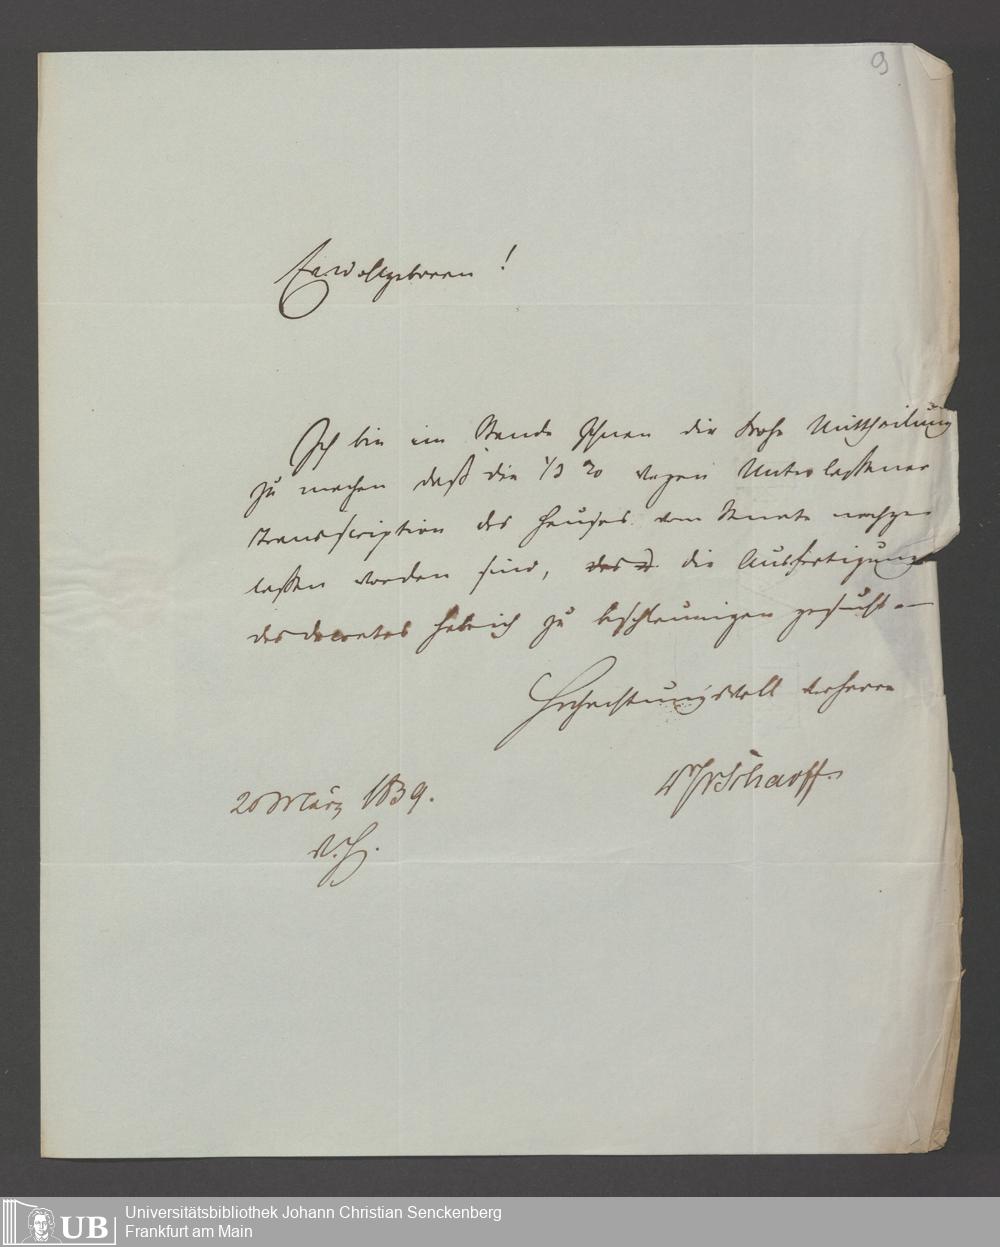 9
Ew. Wohlgeboren!
Ich bin im Stande Ihnen die frohe Mittheilung
zu machen daß die 1/3 % wegen Unterlassener
Transscription des Hauses vom Senate nachge-
lassen worden sind, die Ausfertigung
des Decretes habe ich zu beschleunigen gesucht. —
Hochachtungsvoll
Dr. Scharff.
20 März 1839.
v. H.
UB
Universitätsbibliothek Johann Christian Senckenberg
Frankfurt am Main